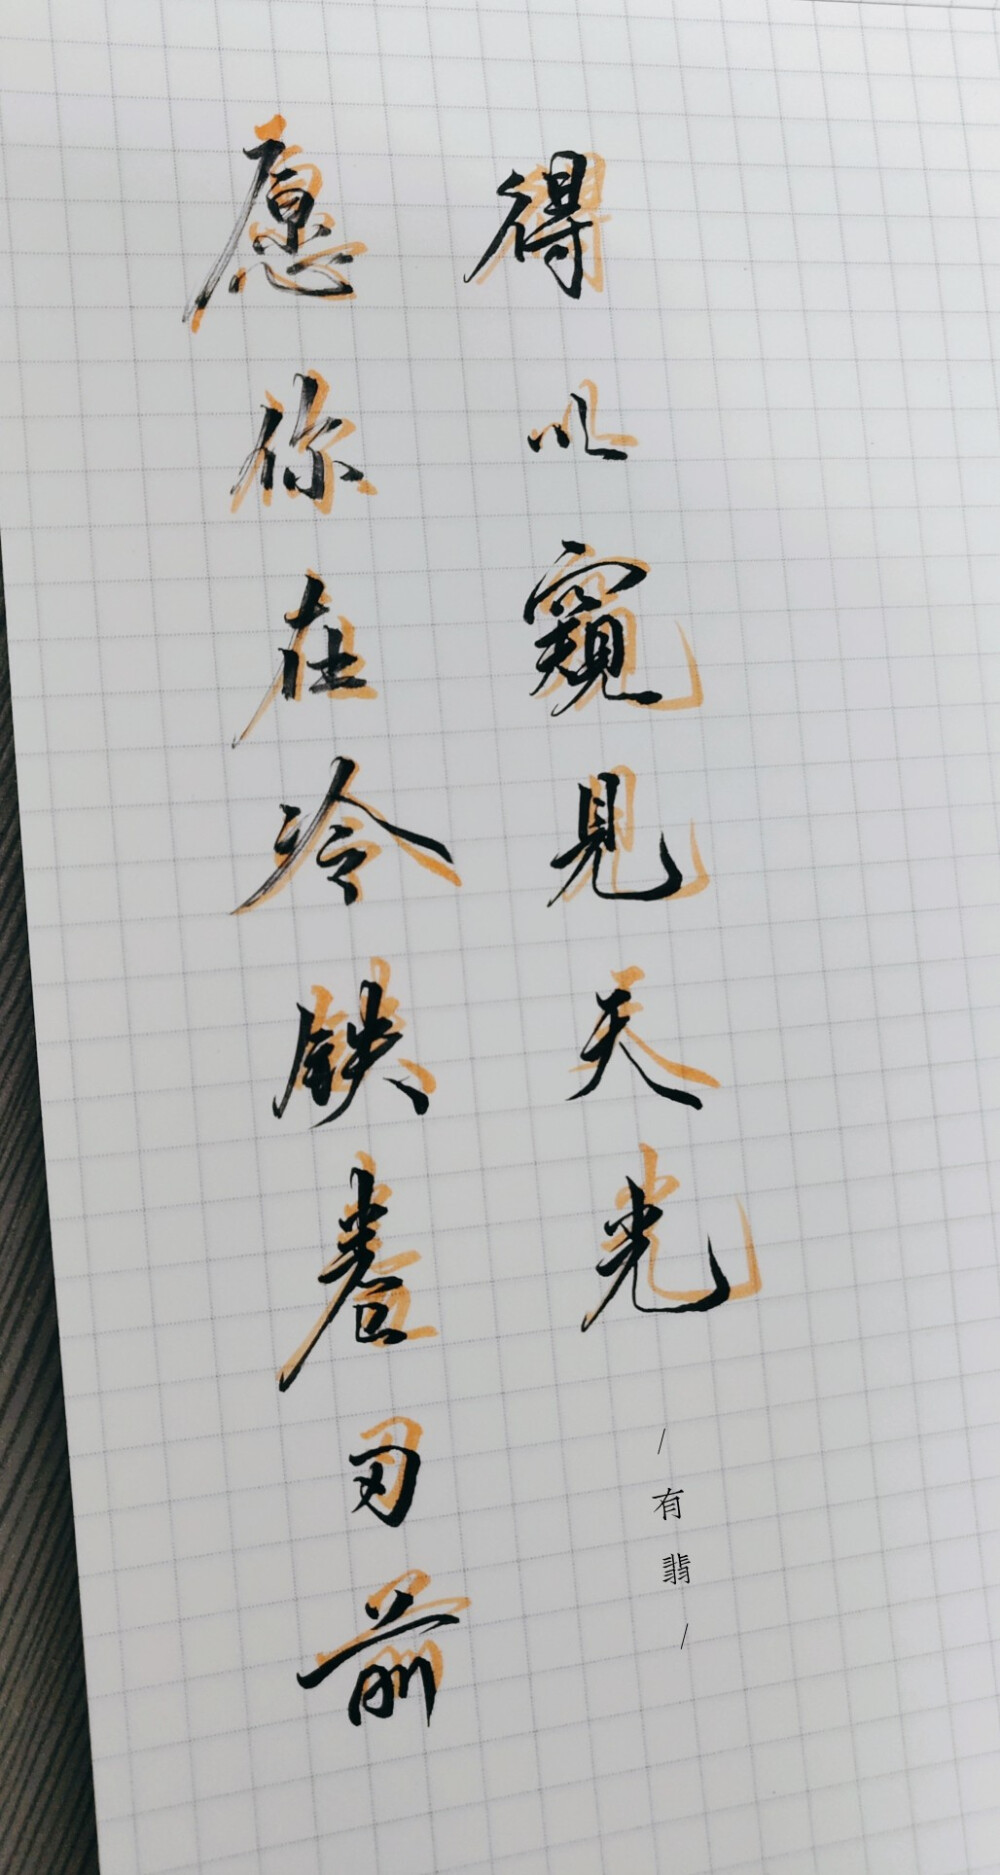 愿你在冷铁卷刃前
得以窥見天光
/有翡/